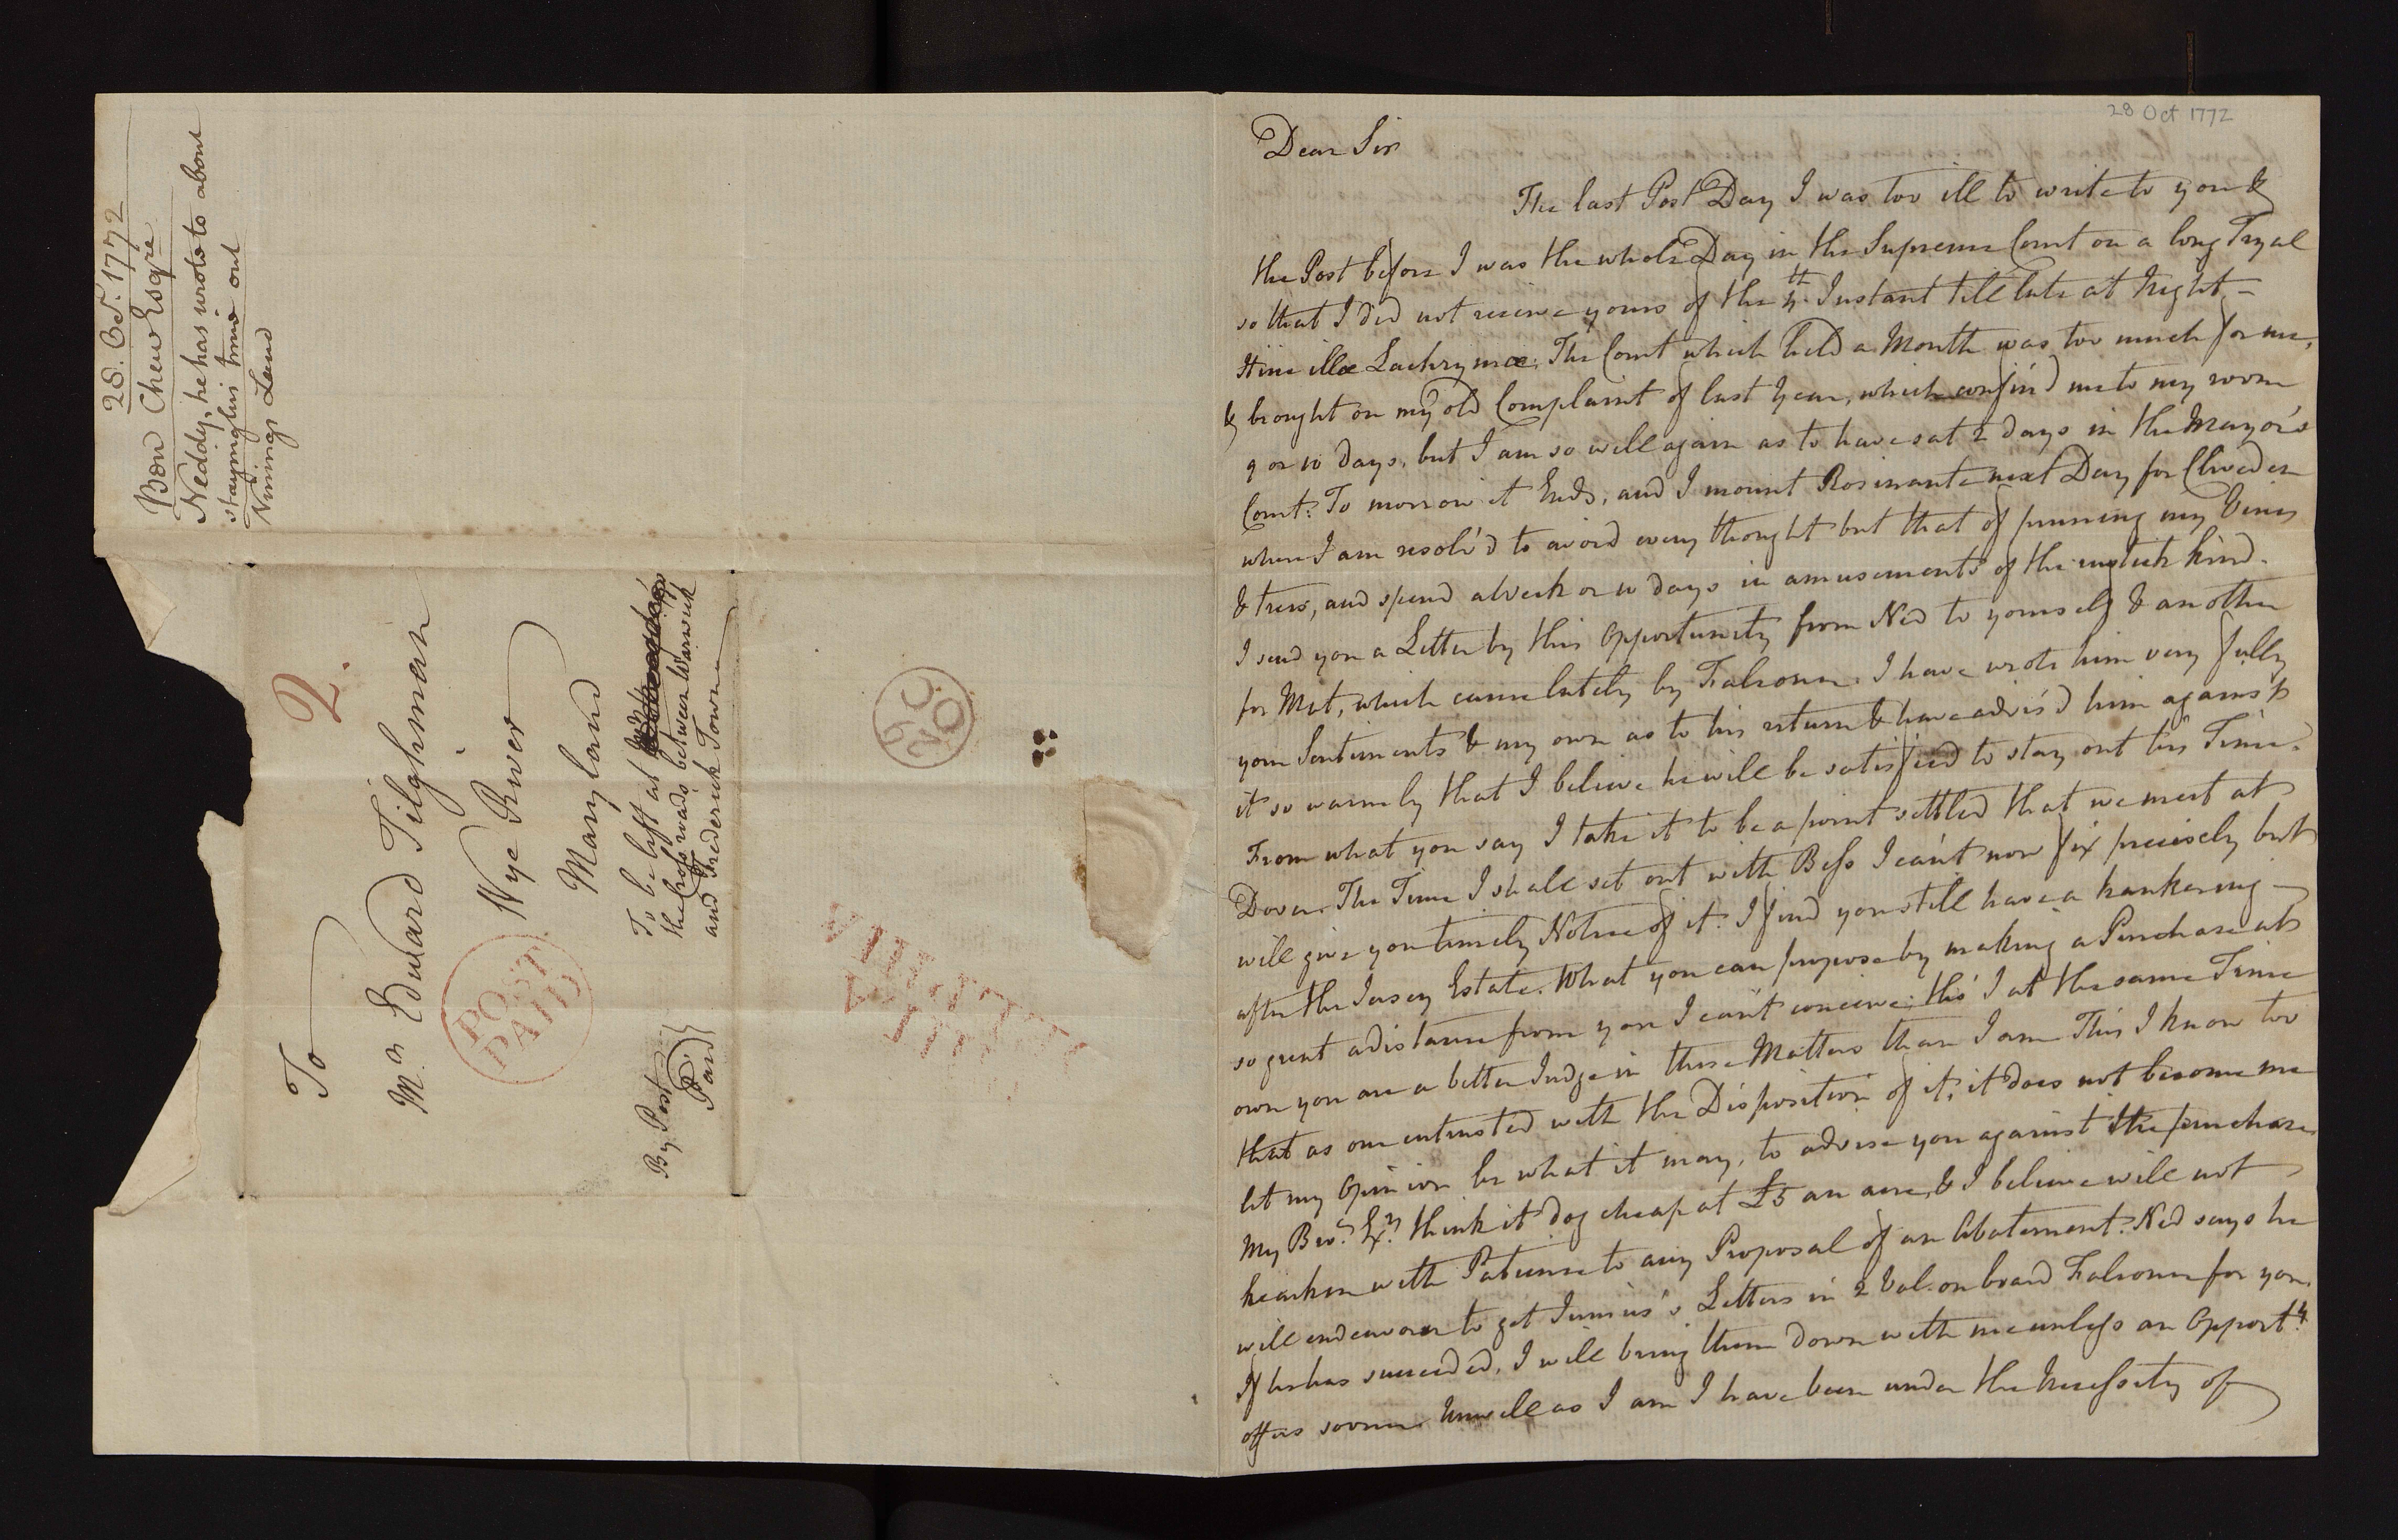 28. Oct. 1772
Ben Chew Esqre
Neddy, he has wrote to about
staying his time out
Nining's Land
To
Mr Edward Tilghman
Nye River
Maryland
To be left at
the Cross roads between Warwick
and Frederick Town
By Post
Paid
2.
POST
PAID
29
OC
PHILADELPHIA
28 Oct 1772
Dear Sir
The last Post Day I was too ill to write to you &
the Post before I was the whole Day in the Supreme Court on a long Tryal
so that I did not receive yours of the 4th Instant till late at Night –
Hinc illæ Lachrymæ. The Court which held a Month was too much for me,
& brought on my old Complaint of last Year, which confin'd me to my room
9 or 10 days, but I am so well again as to have sat 2 days in the Mayor's
Court. To morrow it Ends, and I mount Rosinante next Day for Cliveden
where I am resolv'd to avoid every thought but that of pruning my Vines
& trees, and spend a Week or 10 days in amusements of the rustick kind.
I send you a Letter by this Opportunity from Ned to yourself & another
for Mat, which came lately by Falconer. I have wrote him very fully
your Sentiments & my own as to his return & have advis'd him against
it so warmly that I believe he will be satisfied to stay out his Time.
From what you say I take it to be a point settled that we meet at
Dover. The Time I shall set out with Bess I can't now fix precisely but
will give you timely Notice of it. I find you still have a hankering –
after the Jersey Estate. What you can propose by making a Purchase at
so great a distance from you I can't conceive; tho' I at the same Time
own you are a better Judge in these Matters than I am. This I know too
that as one entrusted with the Disposition of it, it does not become me
let my Opinion be what it may, to advise you against the purchase.
My Bror Exr think it dog cheap at £5 an acre, & I believe will not
hearken with Patience to any Proposal of an Abatement. Ned says he
will endeavour to get Junius's Letters in 2 Vol. on board Falconer for you.
If he has succeeded, I will bring them down with me unless an Opporty
offers sooner. Unwell as I am I have been under the Necessity of